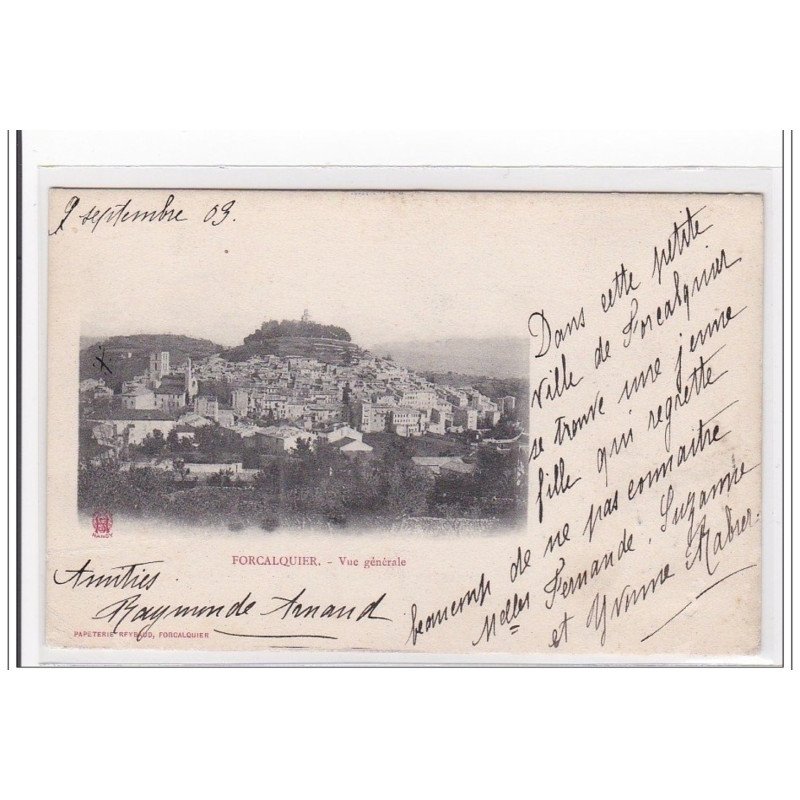 9 septembre 03.
Dans cette petite
ville de Forcalquier
se trouve une jeune
fille qui regrette
beaucoup de ne pas connaitre
Melles Fernande, Suzanne
et Yvonne Rabier.
NANCY
FORCALQUIER. - Vue générale
Amitiés.
Raymonde Arnaud
PAPETERIE REYBAUD, FORCALQUIER